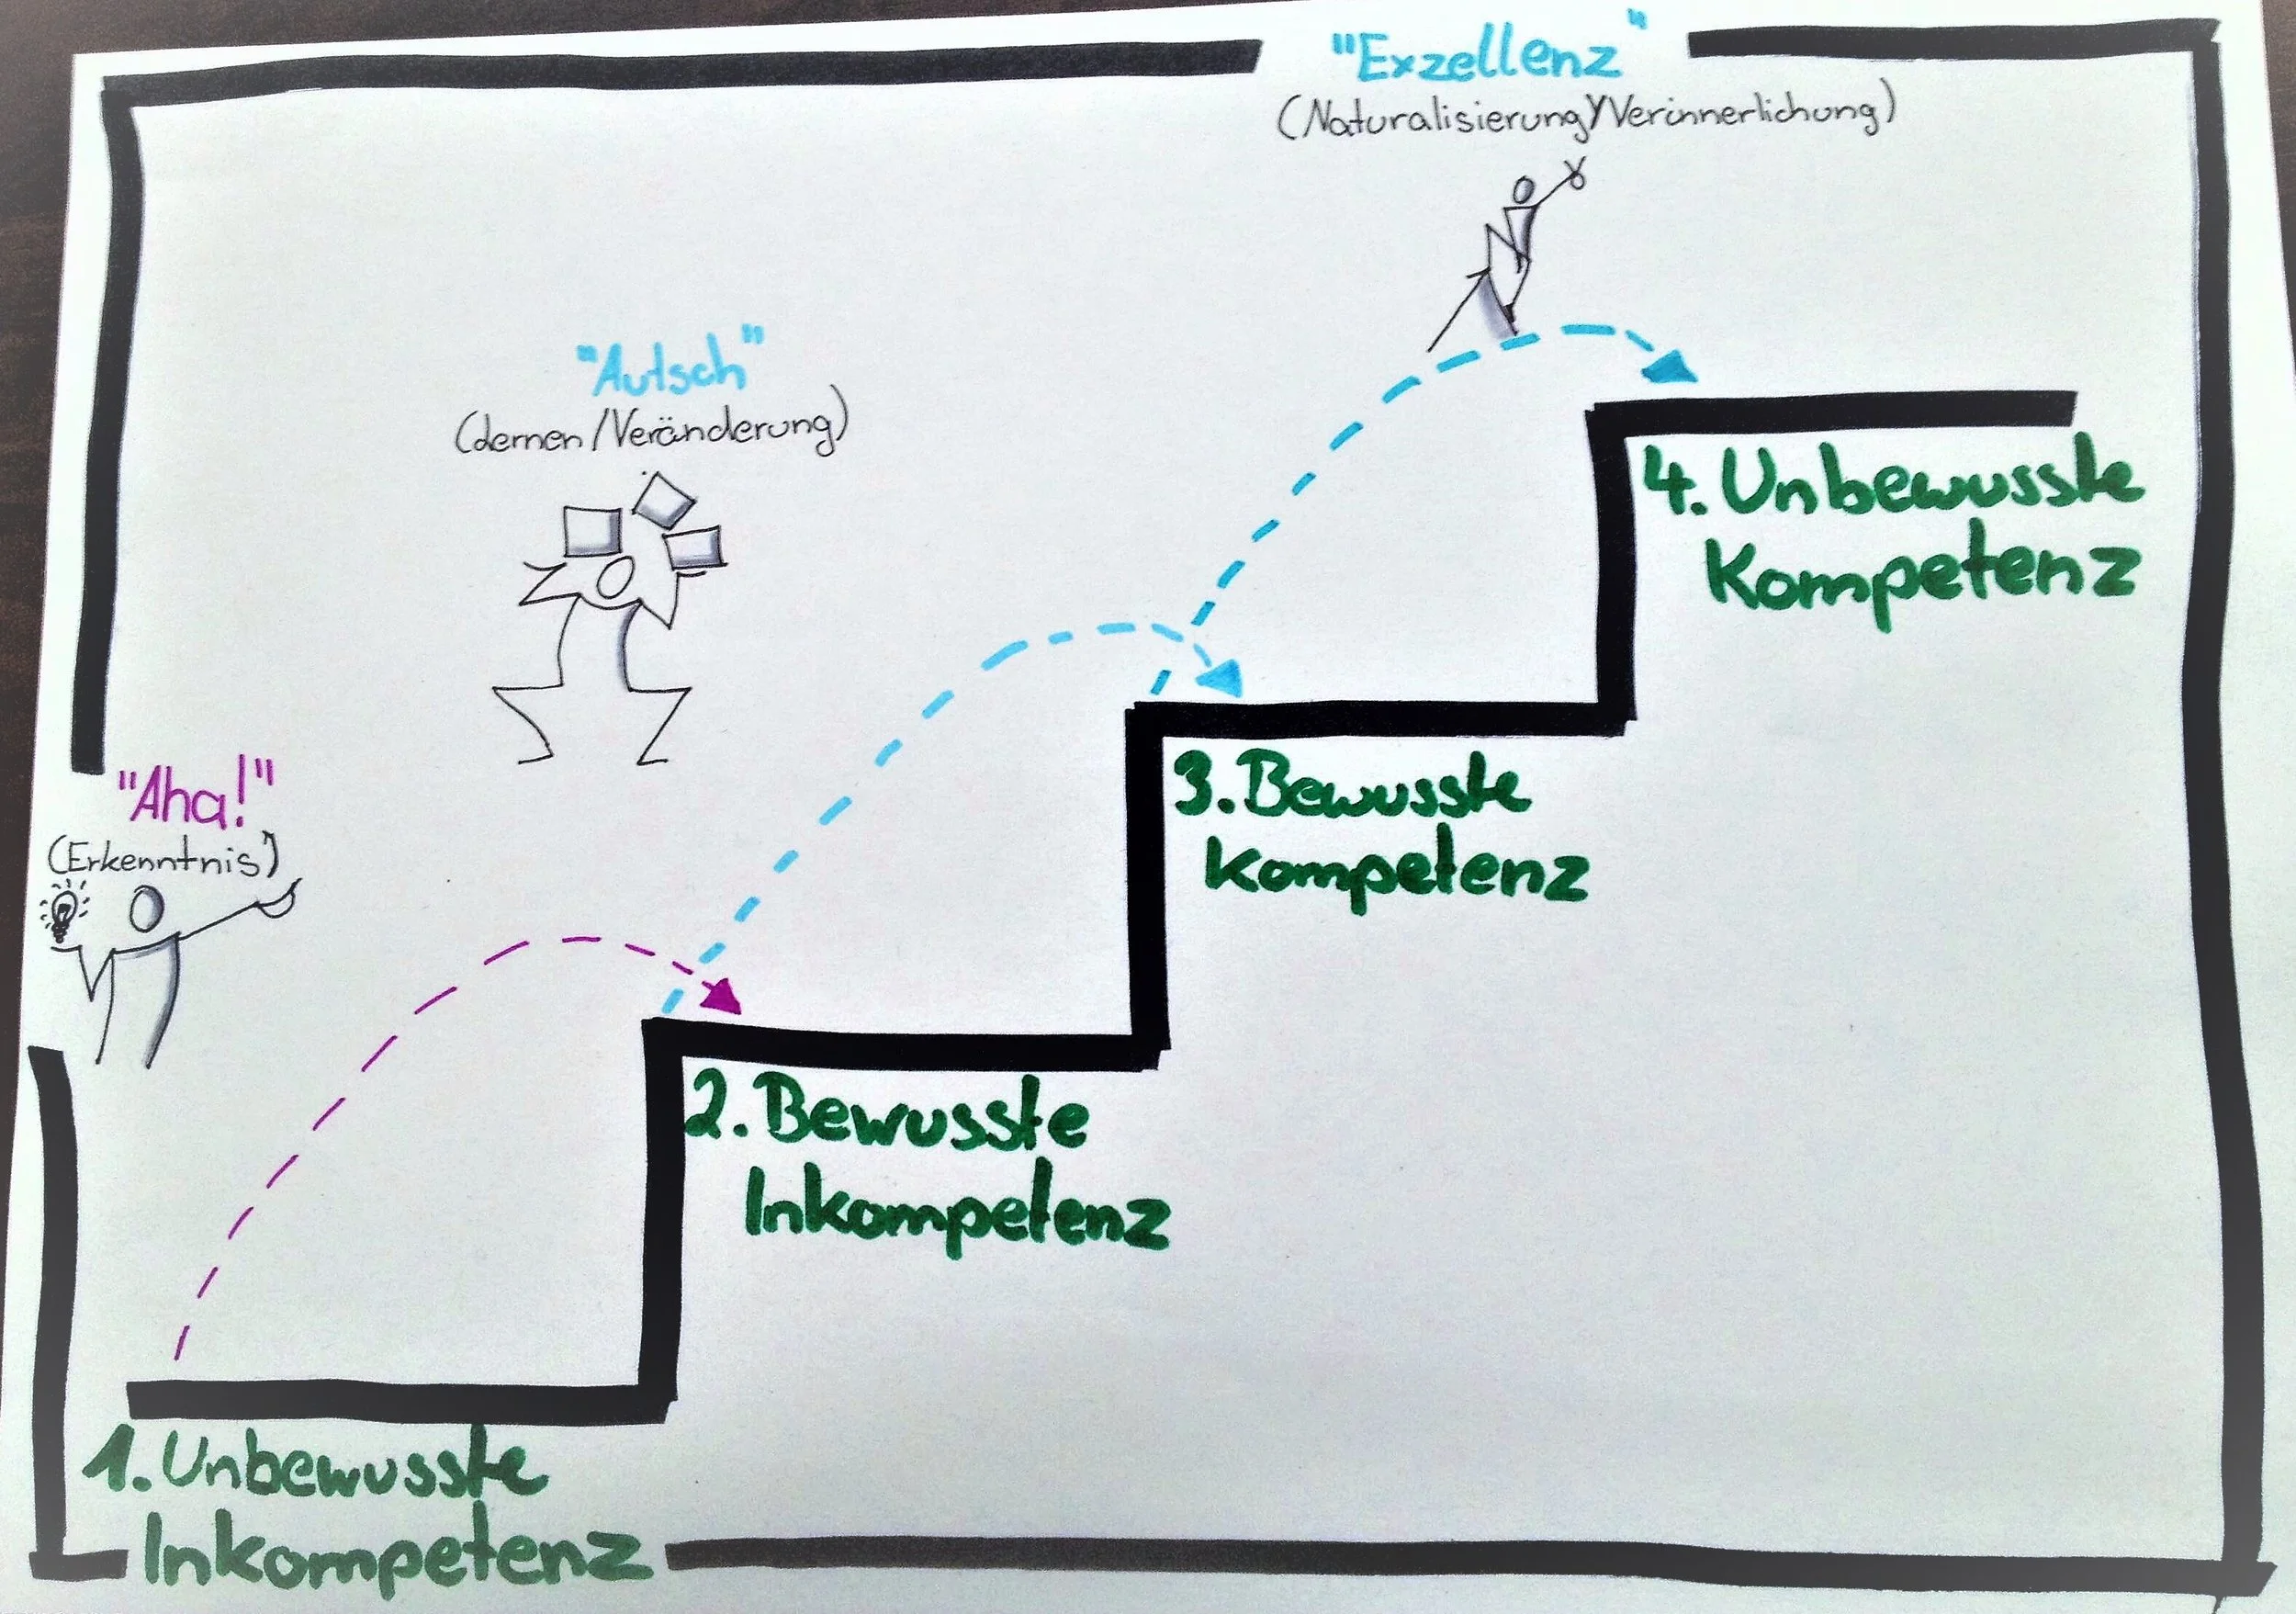 "Exzellenz"
(Naturalisierung/Verinnerlichung)
"Autsch"
(Lernen/Veränderung)
"Aha!"
(Erkenntnis)
4. Unbewusste
Kompetenz
3. Bewusste
Kompetenz
2. Bewusste
Inkompetenz
1. Unbewusste
Inkompetenz